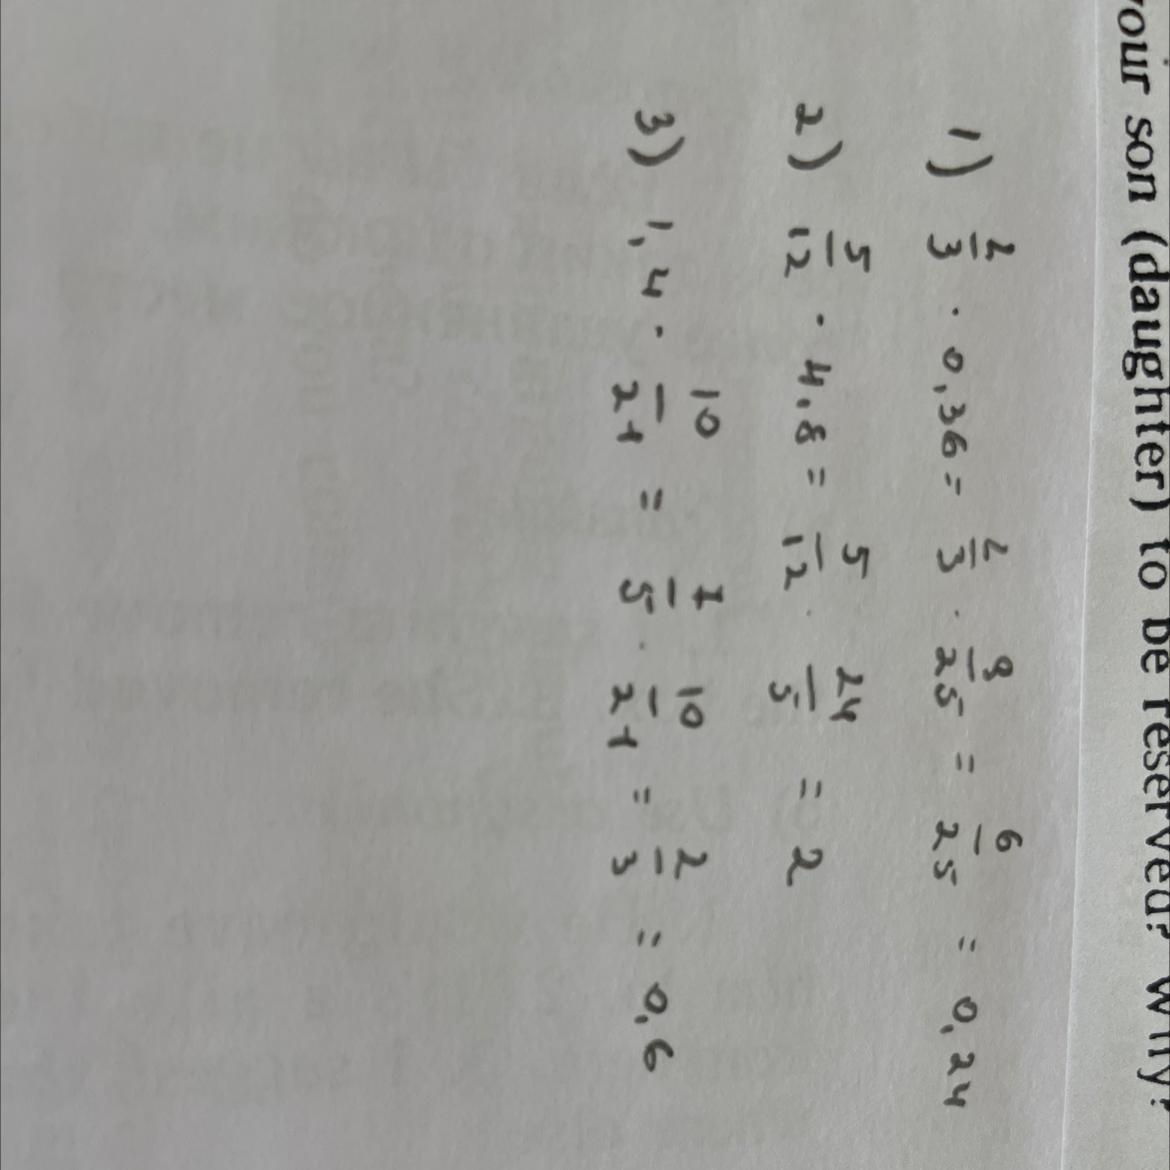 your son (daughter) to be reserved? Why?
1) 2/3 · 0,36 = 2/3 · 9/25 = 6/25 = 0,24
2) 5/12 · 4,8 = 5/12 · 24/5 = 2
3) 1,4 · 10/21 = 7/5 · 10/21 = 2/3 = 0,6